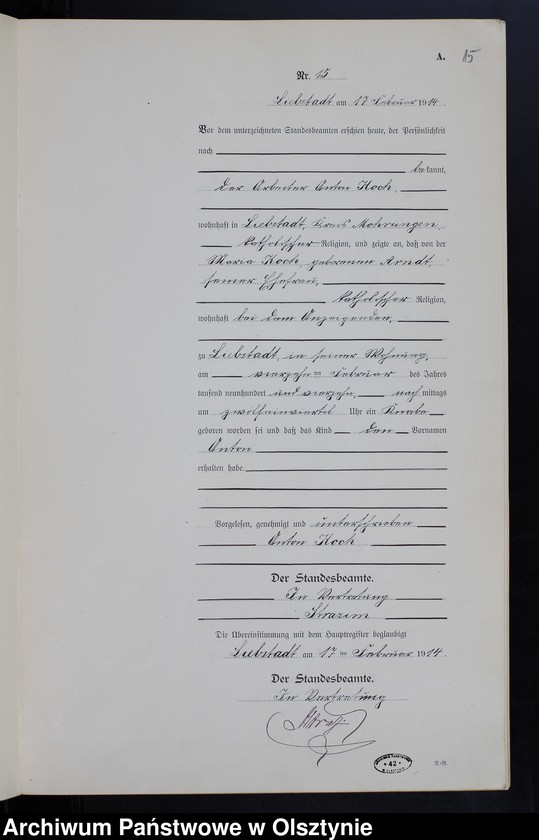 A. 15
Nr. 15
Liebstadt am 17 Februar 1914.
Vor dem unterzeichneten Standesbeamten erschien heute, der Persönlichkeit
nach
bekannt,
der Arbeiter Anton Koch,
wohnhaft in Liebstadt, Kreis Mohrungen,
katholischer Religion, und zeigte an, daß von der
Maria Koch, geborenen Arndt,
seiner Ehefrau,
katholischer Religion,
wohnhaft bei dem Anzeigenden,
zu Liebstadt, in seiner Wohnung,
am vierzehnten Februar des Jahres
tausend neunhundert und vierzehn, nachmittags
um zwölfeinviertel Uhr ein Knabe
geboren worden sei und daß das Kind den Vornamen
Anton
erhalten habe.
Vorgelesen, genehmigt und unterschrieben
Anton Koch
Der Standesbeamte.
In Vertretung
Die Übereinstimmung mit dem Hauptregister beglaubigt
Liebstadt am 17ten Februar 1914.
Der Standesbeamte.
In Vertretung
42
Archiwum Państwowe w Olsztynie